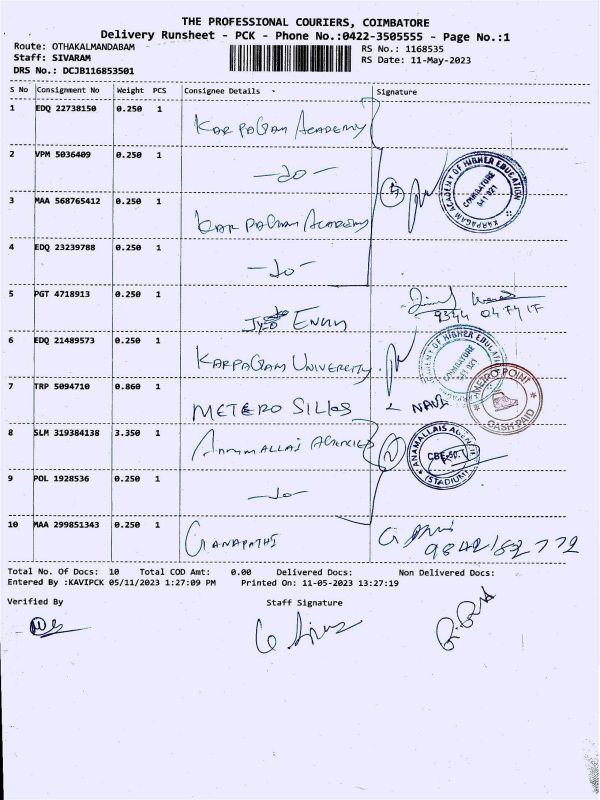 THE PROFESSIONAL COURIERS, COIMBATORE
Delivery Runsheet - PCK - Phone No.:0422-3505555 - Page No.:1
Route: OTHAKALMANDABAM
RS No.: 1168535
Staff: SIVARAM
RS Date: 11-May-2023
DRS No.: DCJB116853501
S No Consignment No Weight PCS Consignee Details Signature
1 EDQ 22738150 0.250 1
KARPAGAM ACADEMY
2 VPM 5036409 0.250 1
-do-
KARPAGAM ACADEMY OF HIGHER EDUCATION
COIMBATORE
641 021
3 MAA 568765412 0.250 1
KARPAGAM ACADEMY
4 EDQ 23239788 0.250 1
-do-
5 PGT 4718913 0.250 1
6 EDQ 21489573 0.250 1
KARPAGAM UNIVERSITY
COIMBATORE
641 021
7 TRP 5094710 0.860 1
METERO SILKS
METRO POINT
CASH PAID
8 SLM 319384138 3.350 1
ANAMALLAIS AGENCIES
2
ANAMALLAIS
CBE-50.
(STADIUM)
9 POL 1928536 0.250 1
-do-
10 MAA 299851343 0.250 1
GANAPATHI
Total No. Of Docs: 10 Total COD Amt: 0.00 Delivered Docs: Non Delivered Docs:
Entered By :KAVIPCK 05/11/2023 1:27:09 PM Printed On: 11-05-2023 13:27:19
Verified By Staff Signature